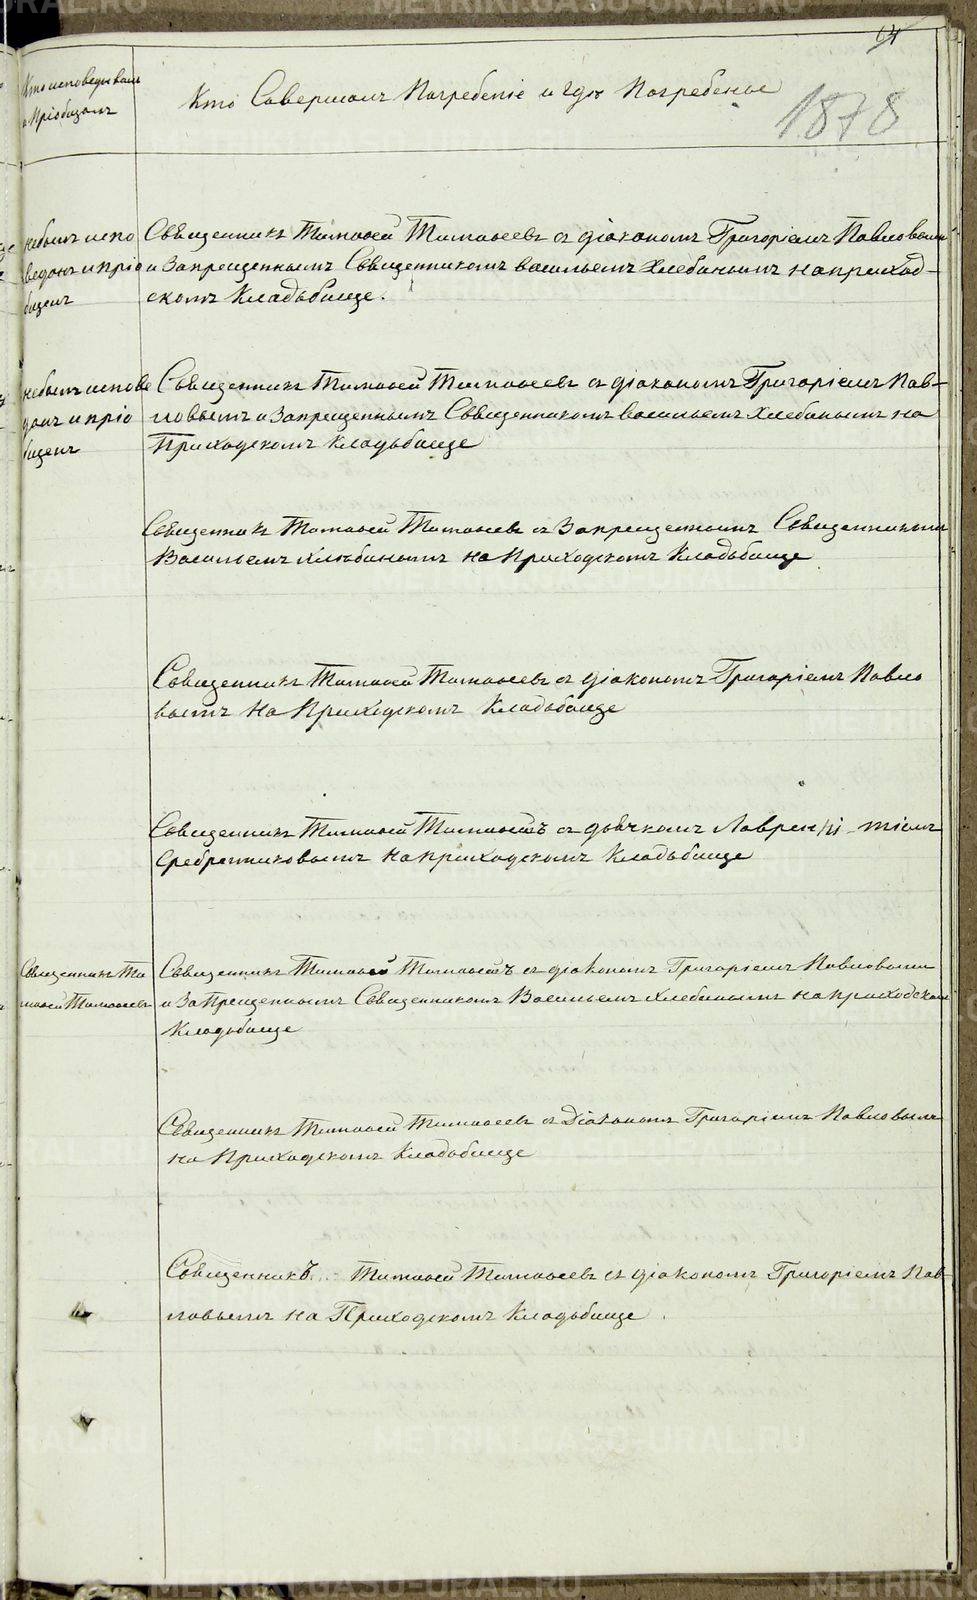 64
Кто исповедывалъ
и Пріобщалъ
Кто Совершалъ Погребеніе и гдѣ Погребены
1878
небылъ испо
веданъ и пріо
бщенъ
Священникъ Тимоѳей Тимоѳеевъ съ діакономъ Григоріемъ Павловымъ
и Запрещеннымъ Священникомъ Васильемъ Хлебинымъ на приход-
скомъ Кладьбище.
небылъ испове
данъ и пріо
бщенъ
Священникъ Тимоѳей Тимоѳеевъ съ діакономъ Григоріемъ Пав-
ловымъ и Запрещеннымъ Священникомъ Васильемъ Хлебинымъ на
Приходскомъ Кладьбище
Священникъ Тимоѳей Тимоѳеевъ съ Запрещеннымъ Священникомъ
Васильемъ Хлѣбинымъ на Приходскомъ Кладьбище
Священникъ Тимоѳей Тимоѳеевъ съ діакономъ Григоріемъ Павло
вымъ на Приходскомъ Кладьбище
Священникъ Тимоѳей Тимоѳеевъ съ дьячкомъ Лаврен тіемъ
Сребрениковымъ на приходскомъ Кладьбище
Священникъ Ти
моѳей Тимоѳеевъ
Священникъ Тимоѳей Тимоѳеевъ съ діакономъ Григоріемъ Павловымъ
и Запрещеннымъ Священникомъ Васильемъ Хлебинымъ на приходскомъ
Кладьбище
Священникъ Тимоѳей Тимоѳеевъ съ Діакономъ Григоріемъ Павловымъ
на Приходскомъ Кладьбище
Священникъ Тимоѳей Тимоѳеевъ съ діакономъ Григоріемъ Пав-
ловымъ на Приходскомъ Кладьбище
METRIKI.GASO-URAL.RU